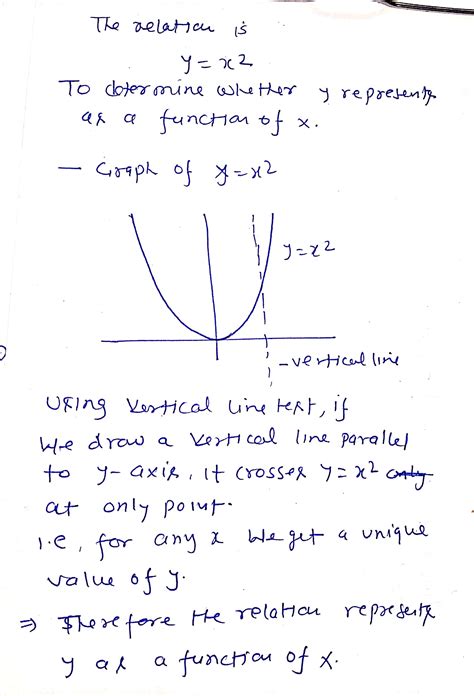 The relation is
y = x2
To determine whether y represents
as a function of x.
— Graph of y = x2
y = x2
- vertical line
Using Vertical Line test, if
we draw a vertical line parallel
to y-axis, it crosses y = x2 only
at only point.
i.e, for any x we get a unique
value of y.
⇒ Therefore the relation represents
y as a function of x.